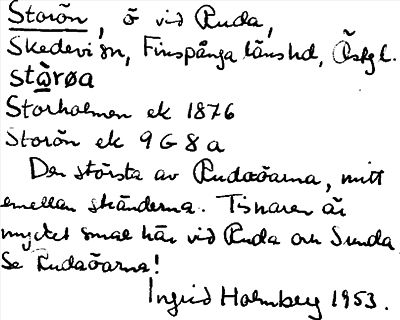 Storön, ö vid Ruda,
Skedevi sn, Finspånga länshd, Östgl.
stὼrøa
Storholmen ek 1876
Storön ek 9 G 8 a
Den största av Rudaöarna, mitt
emellan stränderna. Tisnaren är
mycket smal här vid Ruda och Sunda
Se Rudaöarna!
Ingrid Holmberg 1953.